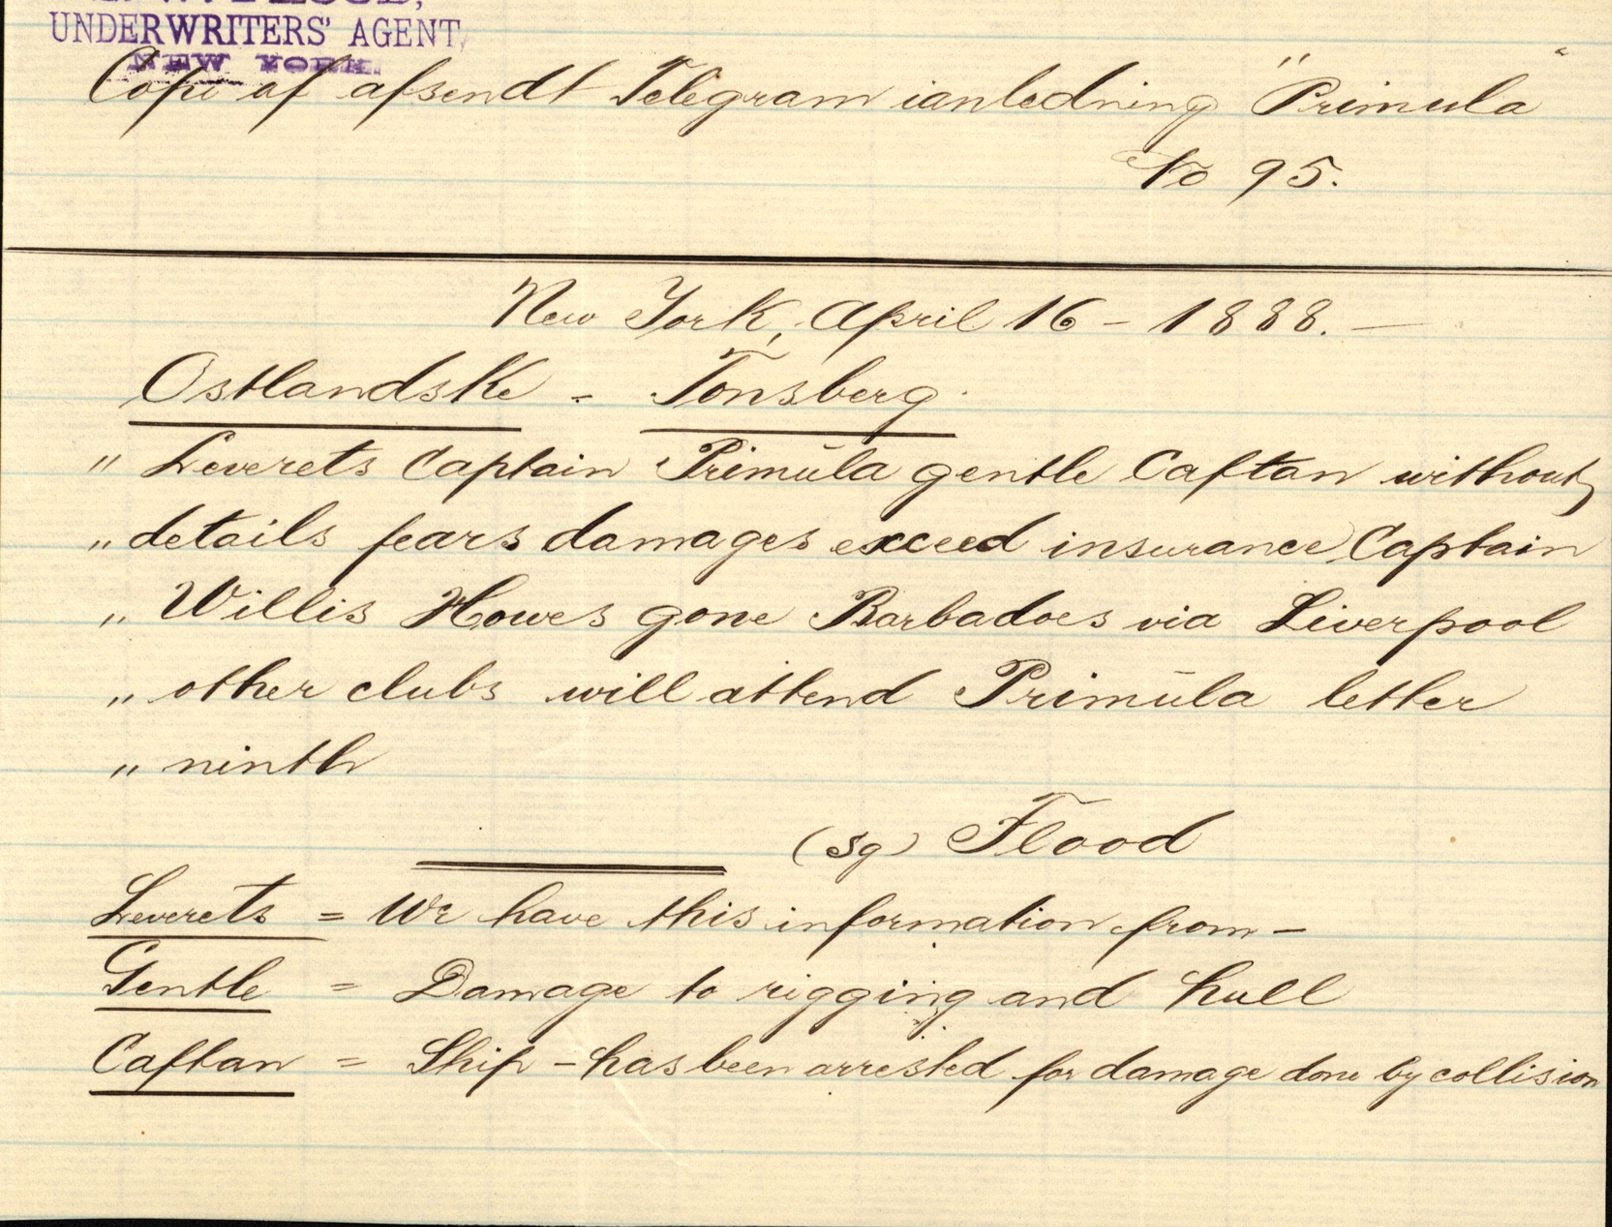 UNDERWRITERS' AGENT,
NEW YORK.
Copi af afsendt Telegram ianledning "Primula"
No 95.
New York, April 16 - 1888. —
Ostlandske - Tonsberg.
" Leverets Captain Primŭla gentle Caftan without
" details fears damages exceed insurance Captain
" Willis Howes gone Barbadoes via Liverpool
" other clubs will attend Primŭla letter
" ninth
(sg) Flood
Leverets = We have this information from —
Gentle = Damage to rigging and hull
Caftan = Ship - has been arrested for damage done by collision